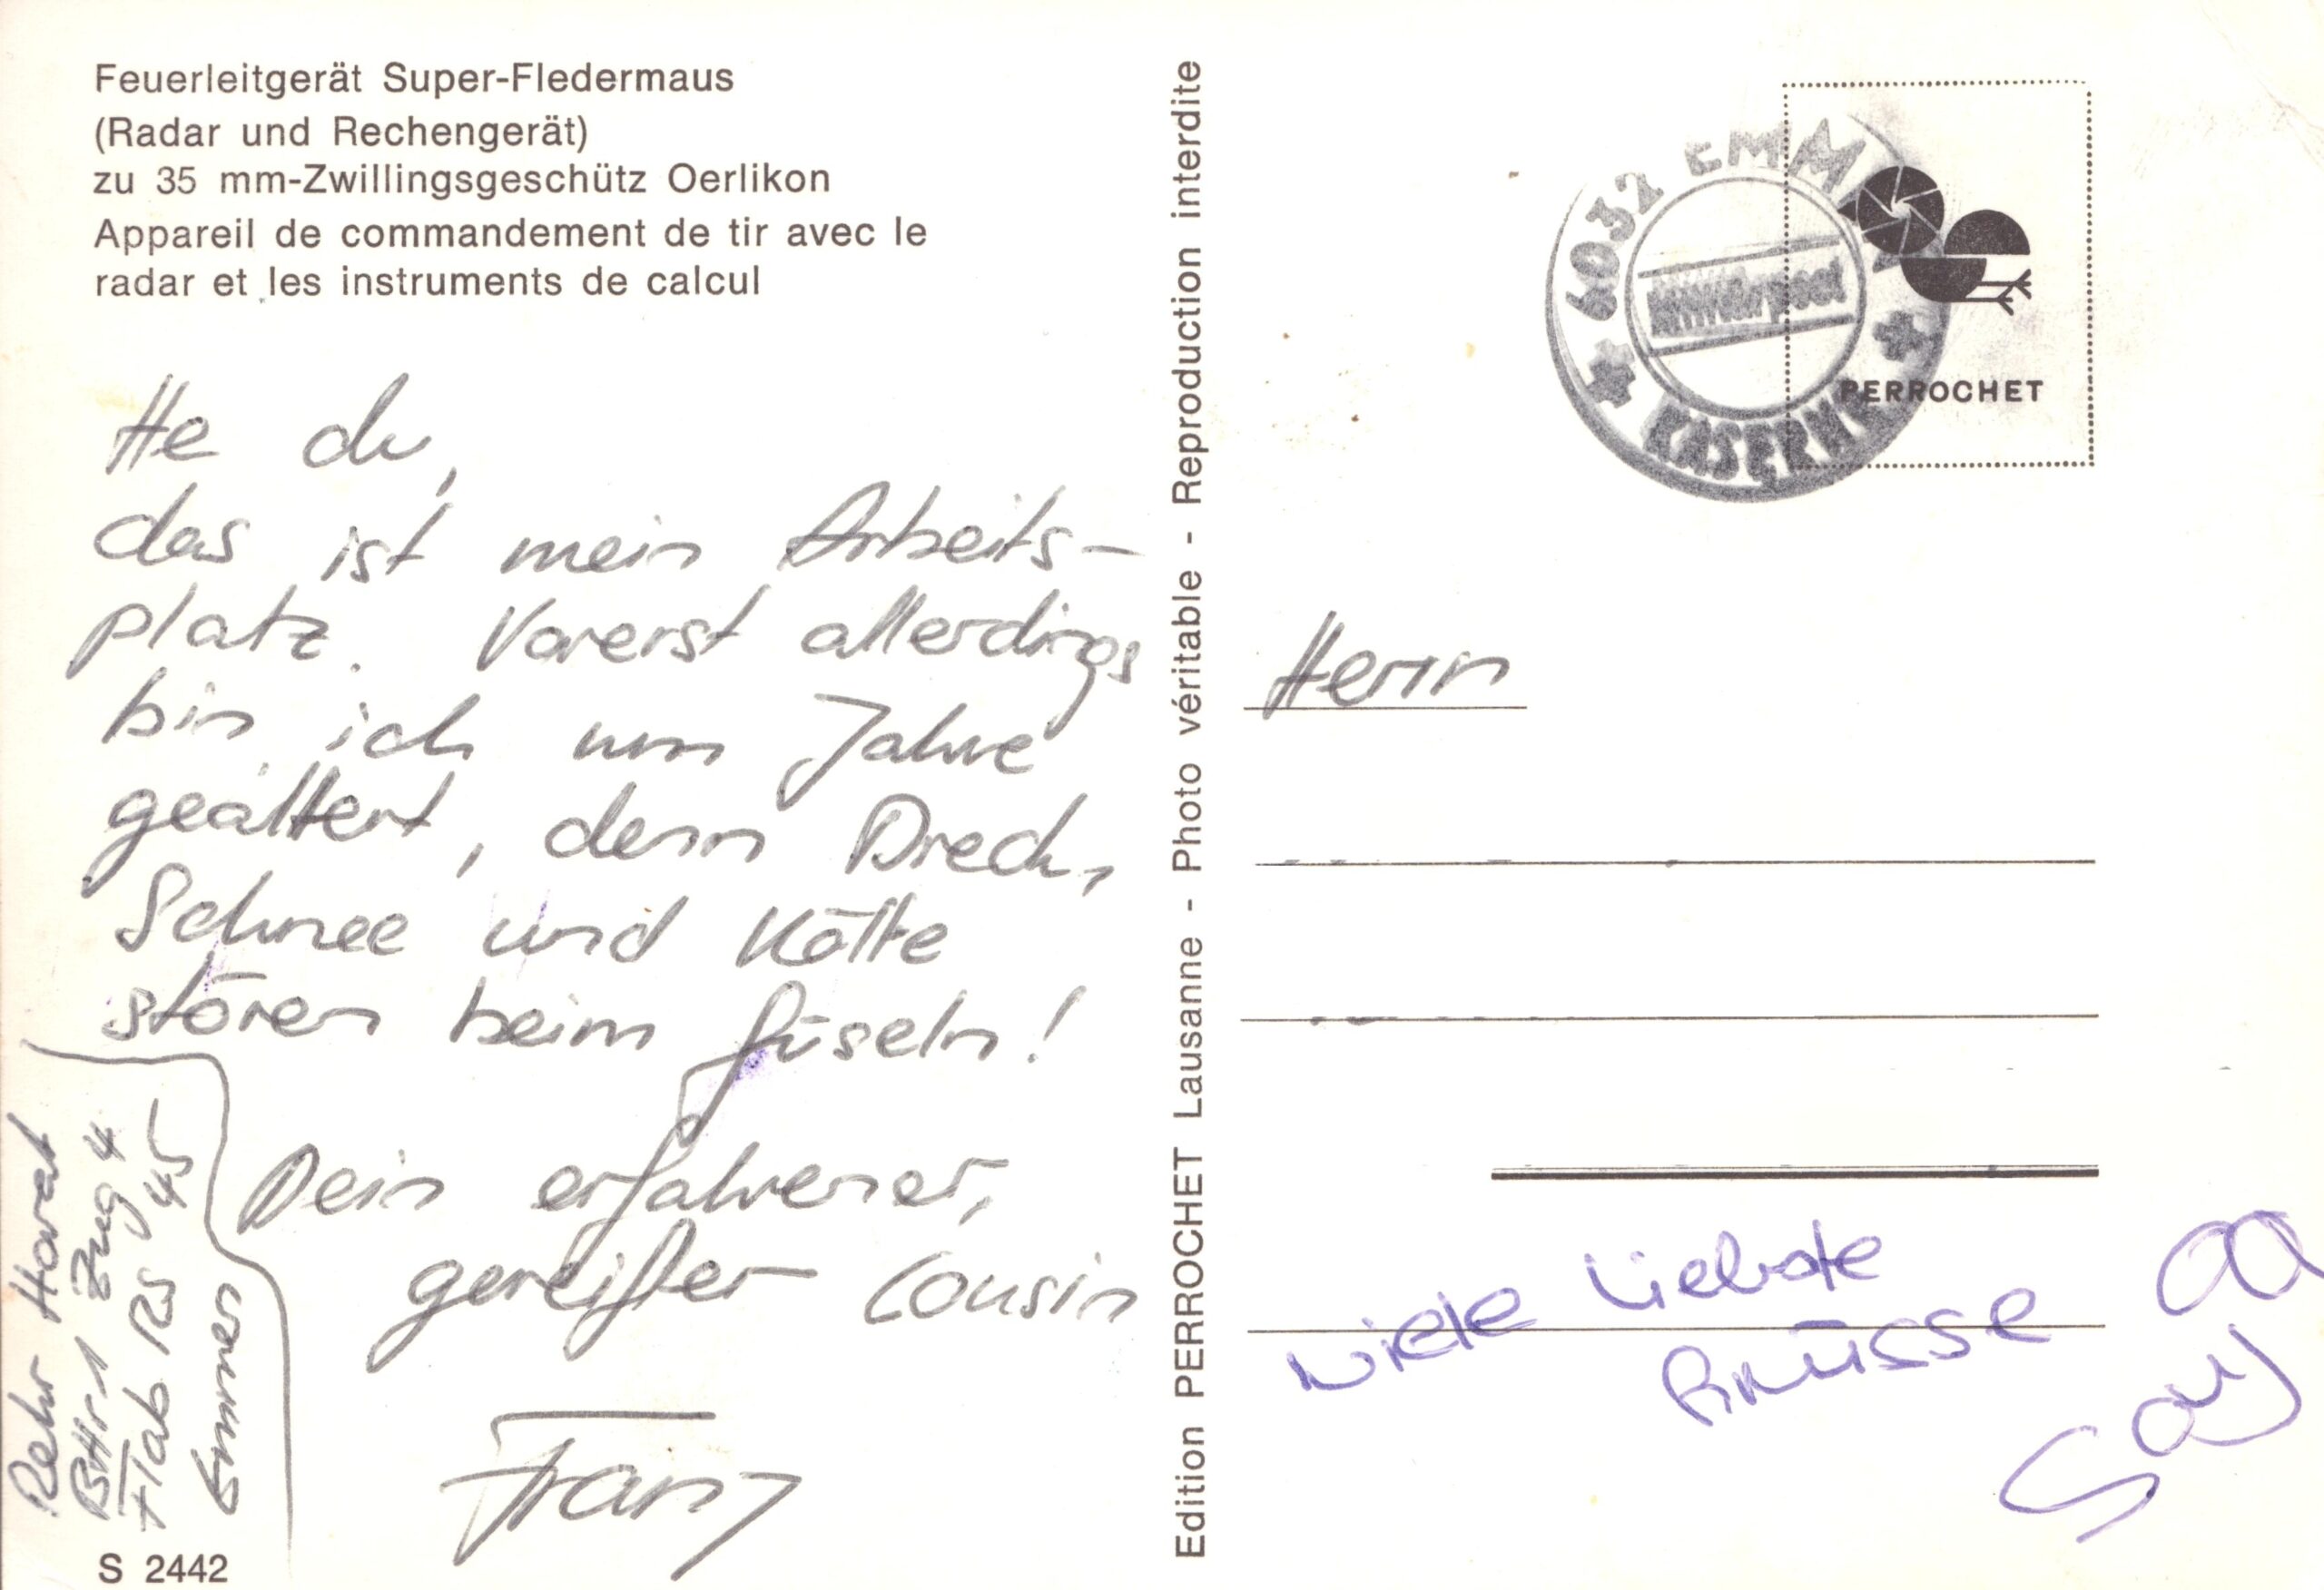 Feuerleitgerät Super-Fledermaus
(Radar und Rechengerät)
zu 35 mm-Zwillingsgeschütz Oerlikon
Appareil de commandement de tir avec le
radar et les instruments de calcul
He du,
das ist mein Arbeits-
platz. Vorerst allerdings
bin ich um Jahre
gealtert, denn Dreck,
Schnee und Kälte
stören beim füseln!
Dein erfahrener,
gereifter Cousin
Franz
Rekr Horat
Bttr 1 Zug 4
Flab RS 45
Emmen
S 2442
Edition PERROCHET Lausanne - Photo véritable - Reproduction interdite
6032 EMM
Militärpost
KASERNE
PERROCHET
Herrn
Viele Liebste
Grüsse